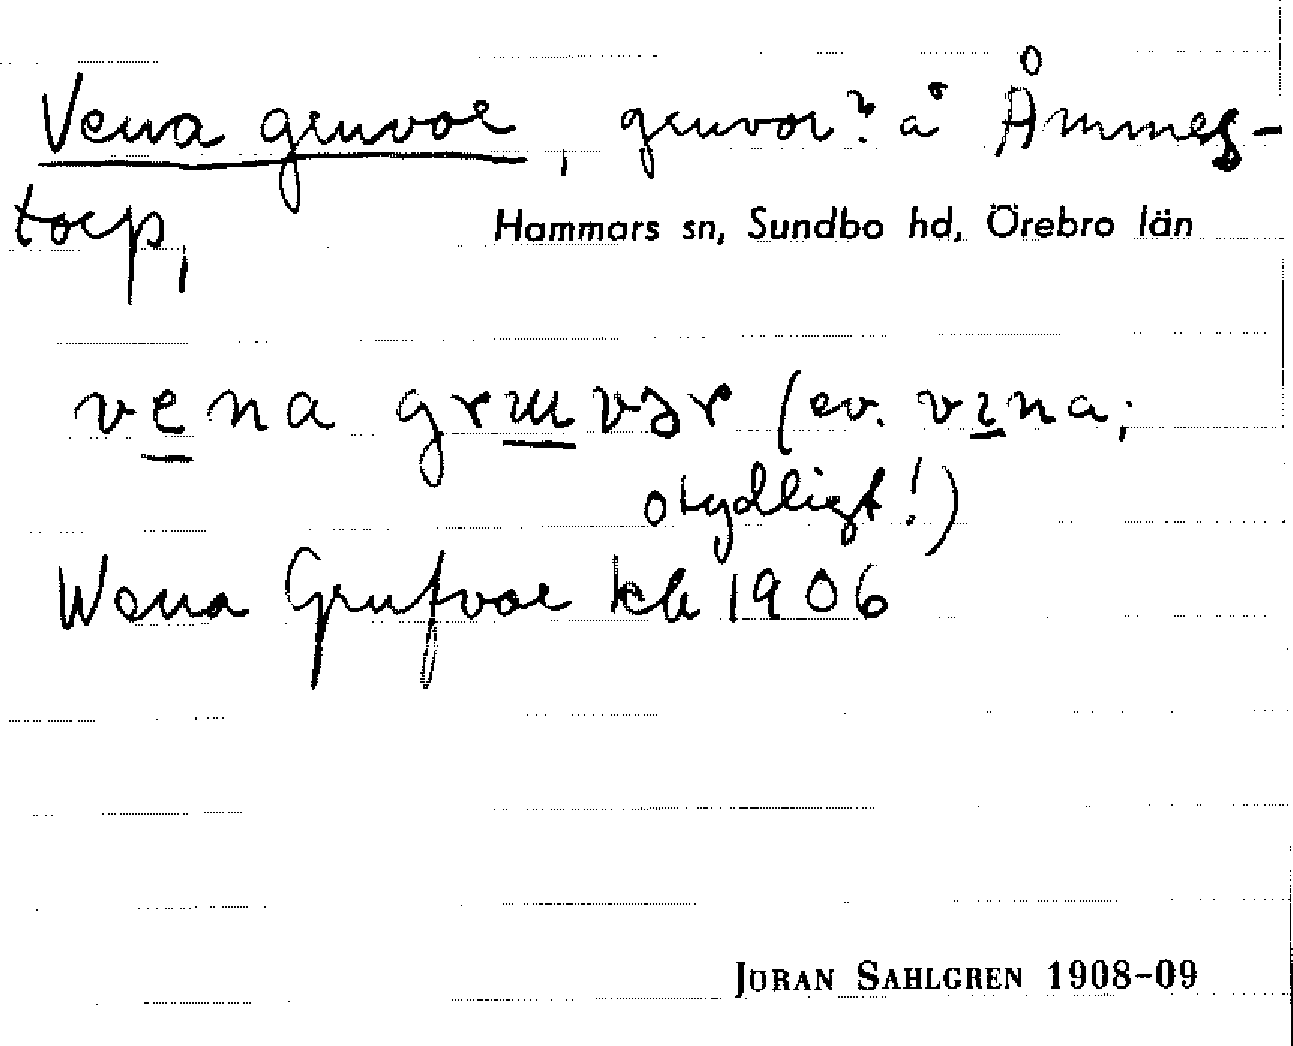 Vena gruvor, gruvor? å Åmmes-
torp,
Hammars sn, Sundbo hd, Örebro län
vena grɯvər (ev. vɪna;
otydligt!)
Wena Grufvor kb 1906
JÖRAN SAHLGREN 1908-09